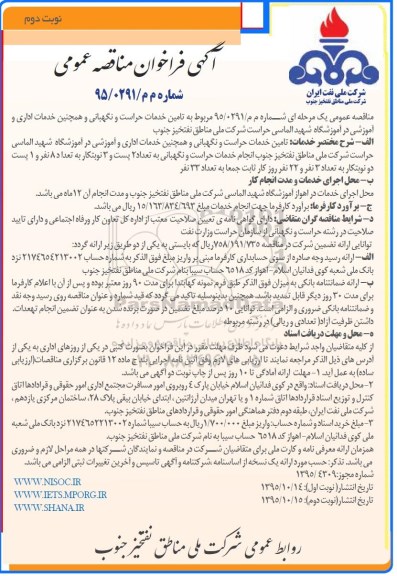 نوبت دوم
شرکت ملی نفت ایران
شرکت ملی مناطق نفتخیز جنوب
آگهی فراخوان مناقصه عمومی
شماره م م/۹۵/۰۲۹۱
مناقصه عمومی یک مرحله ای شماره م م/۹۵/۰۲۹۱ مربوط به تامین خدمات حراست و نگهبانی و همچنین خدمات اداری و
آموزشی در آموزشگاه شهید الماسی حراست شرکت ملی مناطق نفتخیز جنوب
الف - شرح مختصر خدمات: تامین خدمات حراست و نگهبانی و همچنین خدمات اداری و آموزشی در آموزشگاه شهید الماسی
حراست شرکت ملی مناطق نفتخیز جنوب انجام خدمات حراست و نگهبانی به تعداد ۲ پست و ۳ نوبتکار به تعداد ۸ نفر و ۱ پست
دو نوبتکار به تعداد ۳ نفر و ۲۲ نفر روز کار ثابت جمعا به تعداد ۳۳ نفر
ب - محل اجرای خدمات و مدت انجام کار
محل اجرای خدمات در اهواز آموزشگاه شهید الماسی شرکت ملی مناطق نفتخیز جنوب و مدت انجام آن ۱۲ ماه می باشد.
ج - برآورد کارفرما: برآورد کارفرما جهت انجام خدمات مبلغ ۱۵/۱۶۳/۸۳۴/۶۹۳ ریال می باشد.
د - شرایط مناقصه گران متقاضی: دارای گواهی نامه ی تعیین صلاحیت معتبر از اداره کل تعاون کار ورفاه اجتماعی و دارای تایید
صلاحیت در رشته حراست و نگهبانی از سازمان حراست وزارت نفت
توانایی ارائه تضمین شرکت در مناقصه ۷۵۸/۱۹۱/۷۳۵ ریال که بایستی به یکی از دو طریق زیر ارائه گردد:
الف - ارائه رسید وجه صادره از سوی حسابداری کارفرما مبنی بر واریز مبلغ فوق الذکر به شماره حساب ۲۱۷۴۶۵۴۲۱۳۰۰۲ نزد
بانک ملی شعبه کوی فدائیان اسلام - اهواز کد ۶۵۱۸ حساب سیبا بنام شرکت ملی مناطق نفتخیز جنوب
ب - ارائه ضمانتنامه بانکی به میزان فوق الذکر طبق فرم نمونه که ابتدا برای مدت ۹۰ روز معتبر بوده و پس از آن با اعلام کارفرما
برای مدت ۳۰ روز دیگر قابل تمدید باشد. همچنین بدینوسیله تاکید می گردد که قید شماره و عنوان مناقصه روی رسید وجه نقد
و ضمانتنامه بانکی ضروری و الزامی است
داشتن ظرفیت آزاد (تعدادی و ریالی) در رشته مربوطه
ه - محل و مهلت دریافت اسناد
از کلیه متقاضیان واجد شرایط دعوت می شود ظرف مهلت مقرر در این فراخوان بصورت کتبی در یکی از روزهای اداری به یکی از
آدرس های ذیل الذکر مراجعه نمایند تا ارزیابی های لازم وفق آئین نامه اجرایی بند ج ماده ۱۲ قانون برگزاری مناقصات (ارزیابی
ساده) به عمل آید. ۱- مهلت ارائه آمادگی تا ۱۰ روز پس از چاپ نوبت دو آگهی می باشد.
۲- محل دریافت اسناد: واقع در کوی فدائیان اسلام خیابان پارک ۴ روبروی امور مسافرت مجتمع اداری امور حقوقی و قراردادها اتاق
کنترل و توزیع اسناد قراردادها اتاق شماره ۱ و یا تهران میدان آرژانتین، ابتدای خیابان بیهقی پلاک ۲۸، ساختمان مرکزی یازدهم،
شرکت ملی نفت ایران، طبقه دوم دفتر هماهنگی امور حقوقی و قراردادهای مناطق نفتخیز جنوب.
۳- مبلغ خرید اسناد و شماره حساب: واریز مبلغ ۱/۷۰۰/۰۰۰ ریال به حساب سیبا شماره ۲۱۷۴۶۵۲۲۱۳۰۰۲ نزد بانک ملی شعبه
ملی کوی فدائیان اسلام - اهواز کد ۶۵۱۸ حساب سیبا به نام شرکت ملی مناطق نفتخیز جنوب.
همزمان ارائه معرفی نامه و کارت ملی برای متقاضیان شرکت در مناقصه و نمایندگان شرکتها در همه مراحل لازم و ضروری
می باشد. تذکر: حسب مورد ارائه یک نسخه از اساسنامه، شرکتنامه و آگهی تاسیس و آخرین تغییرات ثبتی الزامی می باشد.
شماره مجوز: ۱۳۹۵/۴۳۰۹
تاریخ انتشار (نوبت اول): ۱۳۹۵/۱۰/۱۴
تاریخ انتشار (نوبت دوم): ۱۳۹۵/۱۰/۱۵
WWW.NISOC.IR
WWW.IETS.MPORG.IR
WWW.SHANA.IR
روابط عمومی شرکت ملی مناطق نفتخیز جنوب